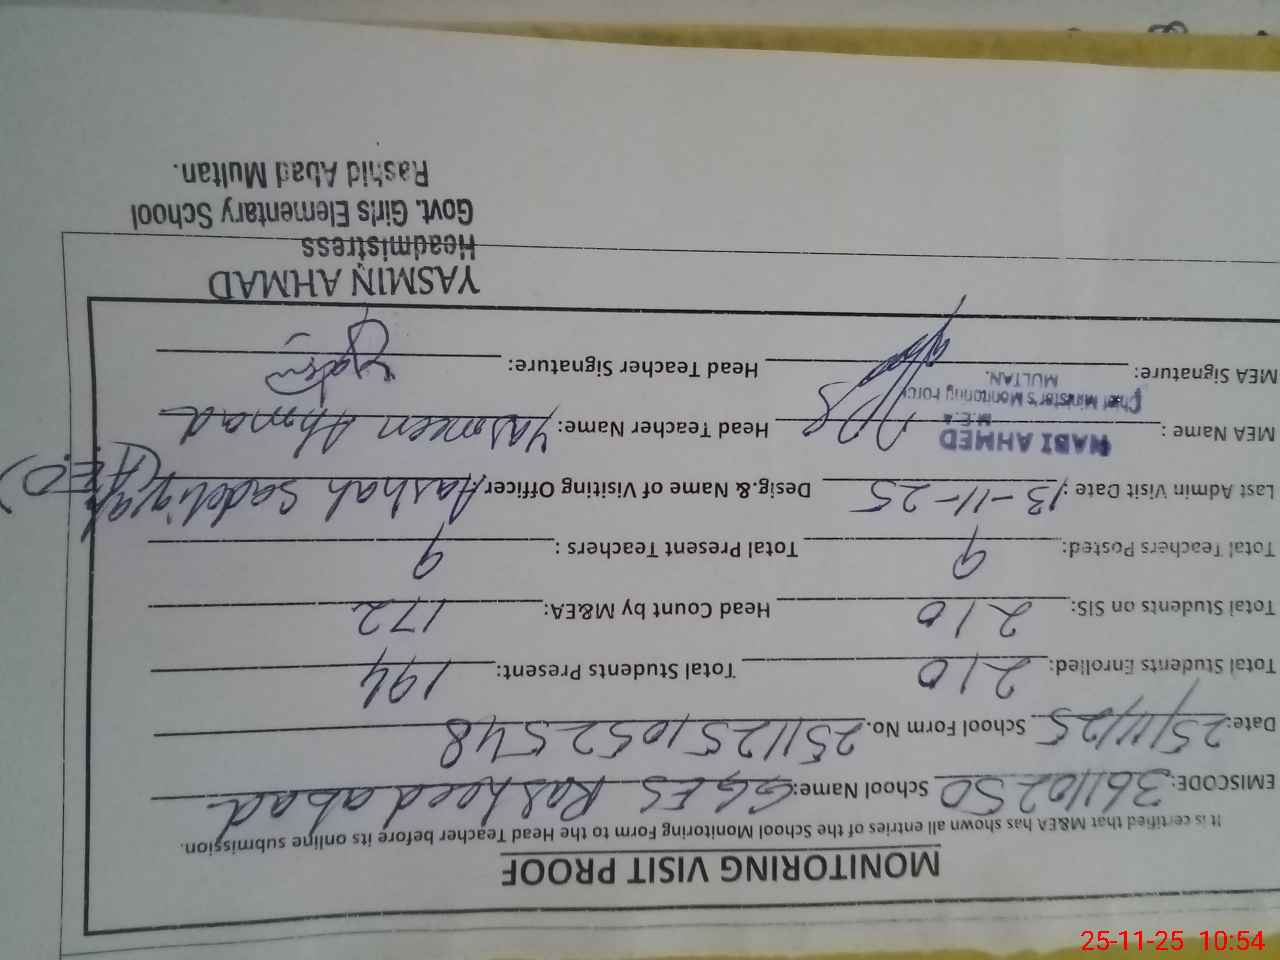 MONITORING VISIT PROOF
It is certified that M&EA has shown all entries of the School Monitoring Form to the Head Teacher before its online submission.
EMISCODE: 36110250 School Name: GGES Rasheed abad
Date: 25/11/25 School Form No. 2511251052548
Total Students Enrolled: 210 Total Students Present: 194
Total Students on SIS: 210 Head Count by M&EA: 172
Total Teachers Posted: 9 Total Present Teachers: 9
Last Admin Visit Date: 13-11-25 Desig.& Name of Visiting Officer (AEO)
MEA Name: NABI AHMED Head Teacher Name: Yasmeen Ahmad
M.E.A
Chief Minister's Monitoring Force
MULTAN.
MEA Signature: Head Teacher Signature:
YASMIN AHMAD
Headmistress
Govt. Girls Elementary School
Rashid Abad Multan.
25-11-25 10:54